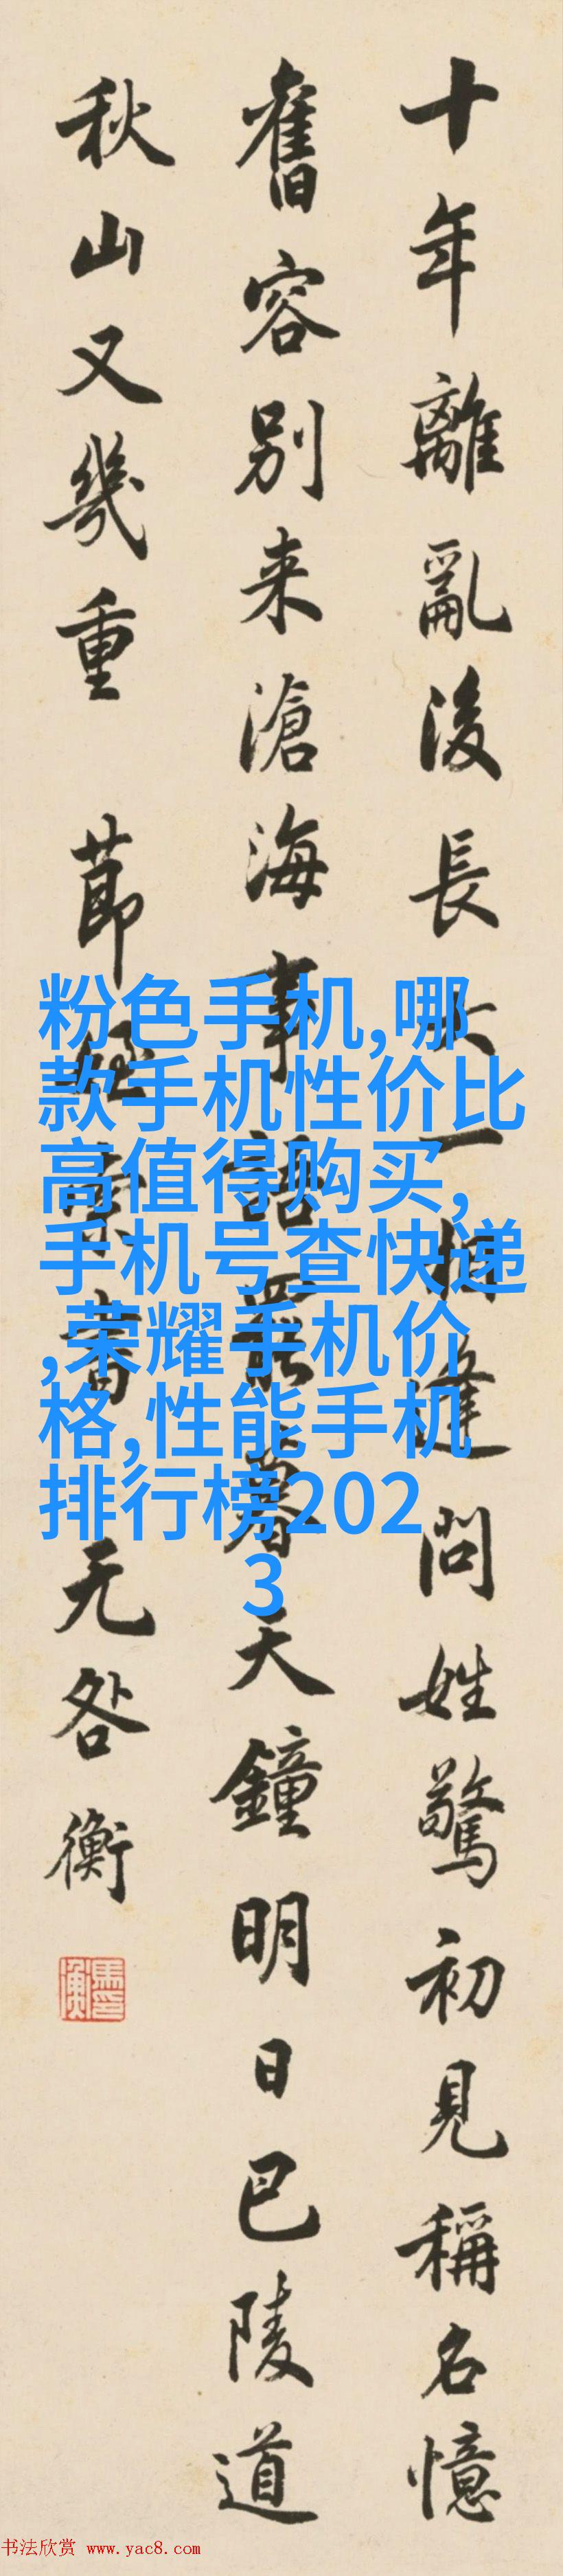 十年離亂後長大一相逢問姓驚初見稱名憶
舊容別来滄海事語罷暮天鐘明日巴陵道
秋山又幾重 節經索書 无咎衡
粉色手机,哪
款手机性价比
高值得购买,
手机号查快递
,荣耀手机价
格,性能手机
排行榜202
3
书法欣赏 www.yac8.com